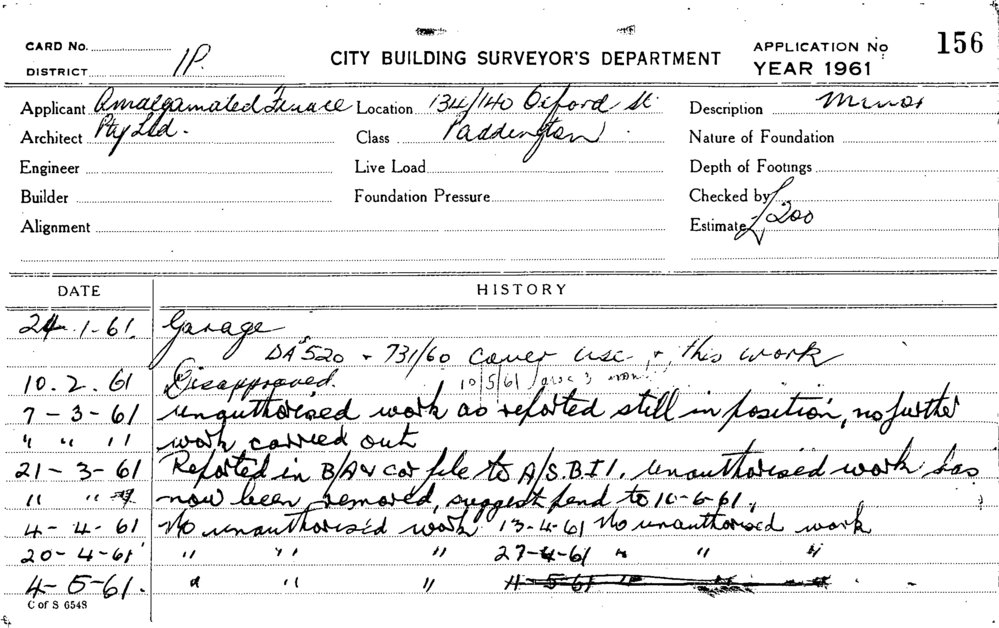 CARD No.
DISTRICT 1P.
CITY BUILDING SURVEYOR'S DEPARTMENT
APPLICATION No 156
YEAR 1961
Applicant Amalgamated Finance Location 134/140 Oxford St Description Minor
Architect Pty Ltd. Class Paddington Nature of Foundation
Engineer Live Load Depth of Footings
Builder Foundation Pressure Checked by
Alignment Estimate £200
DATE HISTORY
24.1-61. Garage
DAs 520 + 731/60 cover use + this work
10.2.61 Disapproved. 10/5/61
7-3-61 unauthorised work as reported still in position, no further
" " " work carried out
21-3-61 Reported in B/A & cov file to A/S.B.I!, unauthorised work has
" " now been removed, suggest pend to 10-6-61.
4-4-61 No unauthorised work 13-4-61 No unauthorised work
20-4-61 " " " 27-4-61 " " "
4-5-61. " " " 4-5-61
C of S 6548